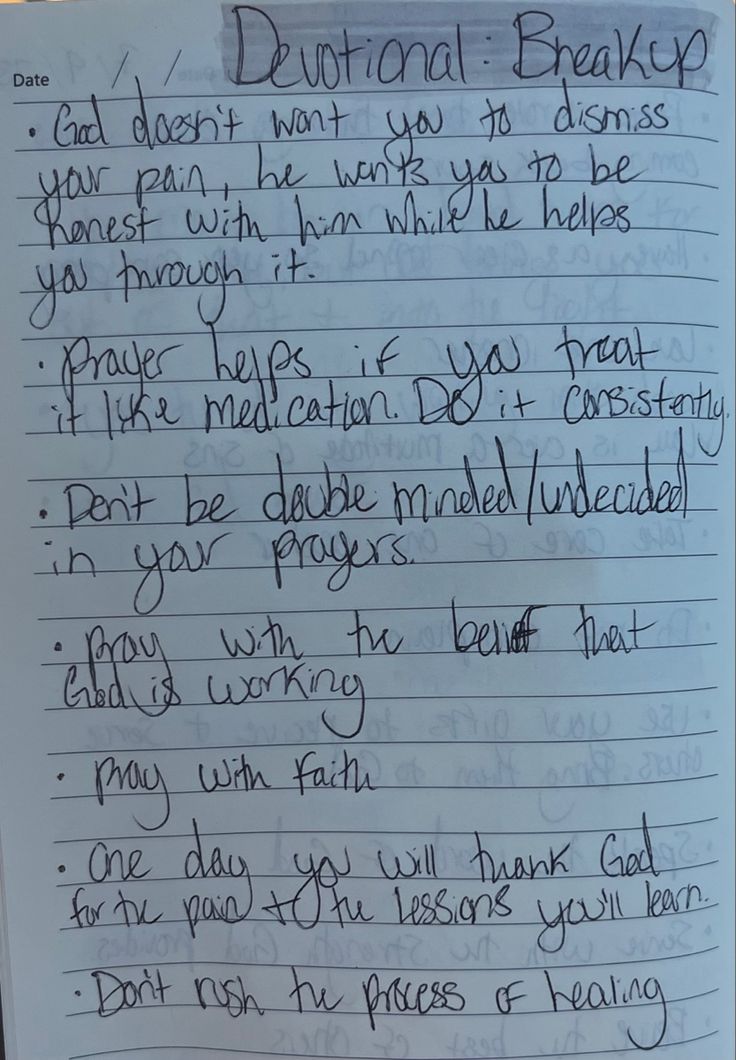 Devotional: Breakup
Date / /
• God doesn't want you to dismiss
your pain, he wants you to be
honest with him while he helps
you through it.
• Prayer helps if you treat
it like medication. Do it consistently.
• Don't be double minded/undecided
in your prayers.
• pray with the belief that
God is working
• pray with faith
• One day you will thank God
for the pain + the lessions you'll learn.
• Don't rush the process of healing